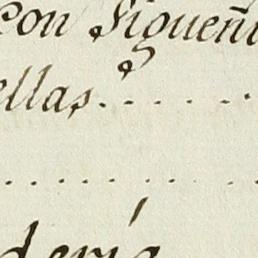 con Sigueñ
ellas. . . . . . .
. . . . . . . . .
dería